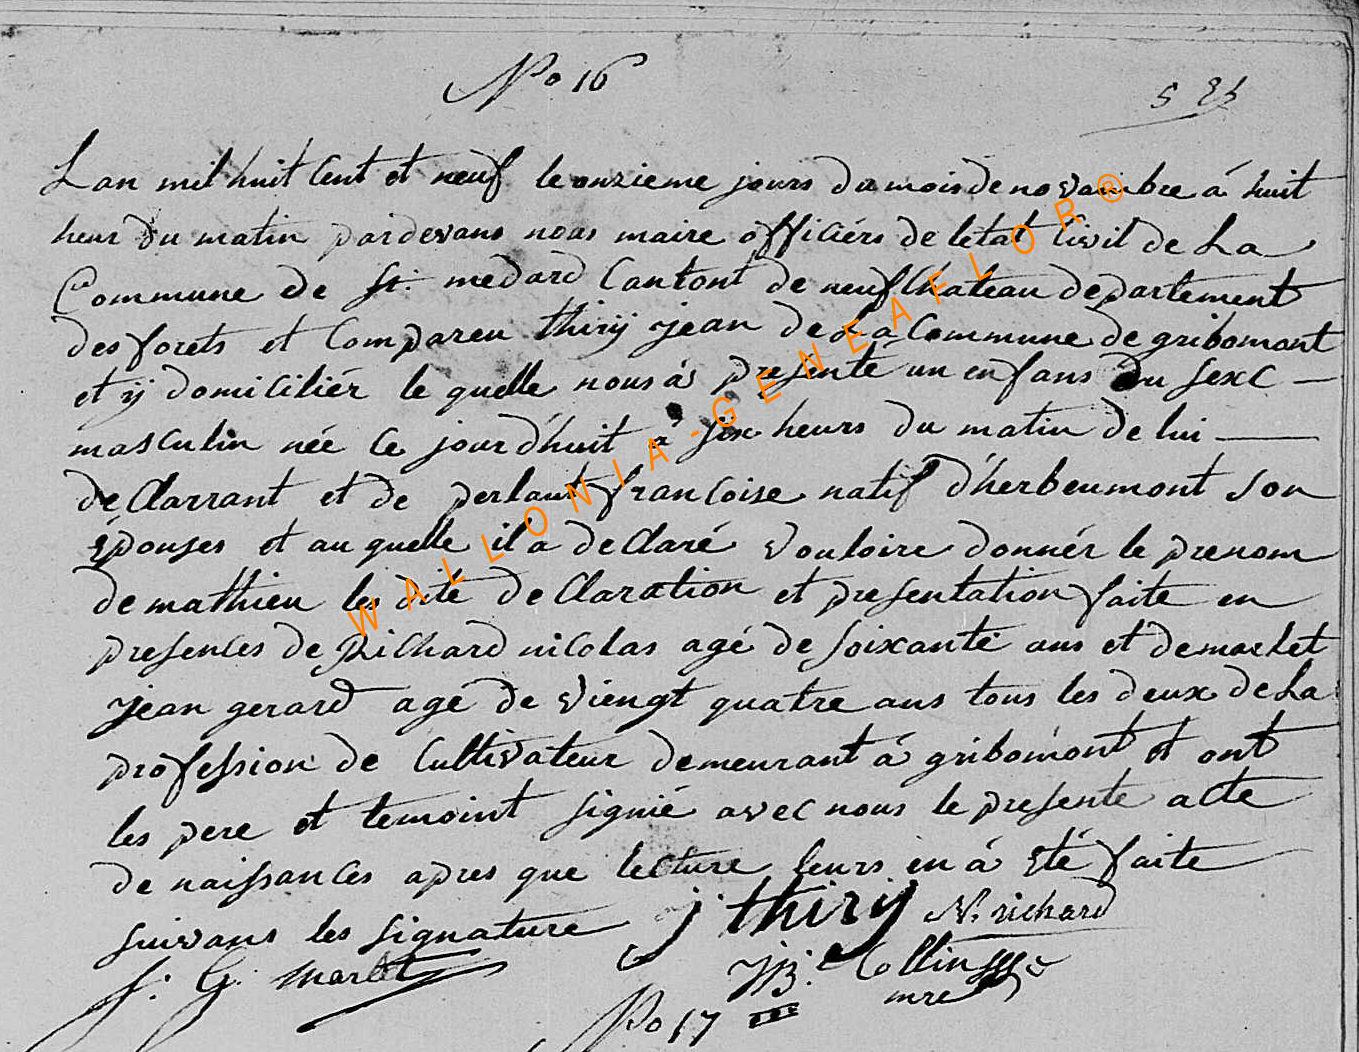 No 16
Lan mil huit Cent et neuf le onzieme jours du mois de novambre á huit
heur du matin pardevans nous maire officiérs de letat Civil de La
Commune de St. medard Cantont de neufChateau departement
des forets et Compareu thirij jean de La Commune de gribomont
et ij domiciliér le quelle nous ás presenté un enfans Du sexe
masculin née Ce jourd'huit á six heurs du matin de lui
deClarrant et de perlaut francoise natif d'herbeumont son
épouses et au quelle il a deClaré vouloire donnér le prenom
de mathieu les dite deClaration et presentation faite en
presences de Richard nicolas agé de soixante ans et demarlet
jean gerard agé de viengt quatre ans tous les deux de La
profession de Cultivateur demeurant á gribomont et ont
les pere et temoint signié avec nous le presente acte
de naissances apres que lecture leurs en á été faite
suivans les signature j thirij N. richard
J: G: marlet JB. Collin
mre
No 17
WALLONIA-GENEAFLOR®